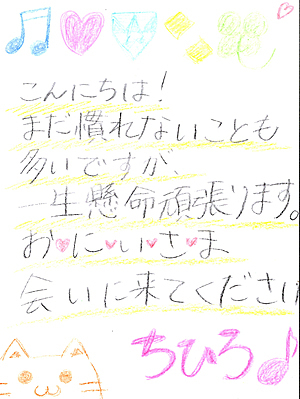 こんにちは!
まだ慣れないことも
多いですが、
一生懸命頑張ります。
お♥に♥い♥さ♥ま
会いに来てください
ちひろ♪